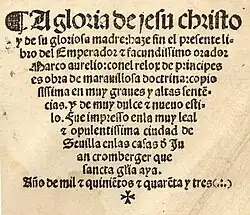 A gloria de jesu christo
y de su gloriosa madre: haze fin el presente li
bro del Emperador ⁊ facundissimo orador
Marco aurelio: con el relox de principes
es obra de marauillosa doctrina: copio
sissima en muy graues y altas senten
cias. y de muy dulce ⁊ nueuo esti
lo. Fue impresso en la muy leal
⁊ opulentissima ciudad de
Seuilla en las casas đ Ju
an cromberger que
sancta gl̃ia aya.
Año de mil ⁊ quiniẽtos ⁊ quarẽta y tres (:.)
✠